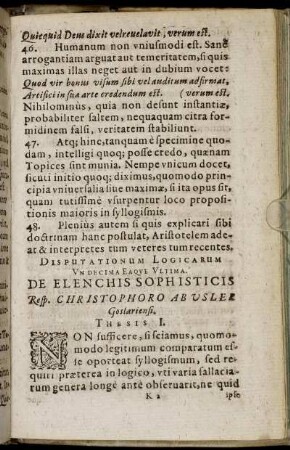 Quicquid Deus dixit vel reuelavit, verum est.
46. Humanum non vniusmodi est. Sanè
arrogantiam arguat aut temeritatem, si quis
maximas illas neget aut in dubium vocet:
Quod vir bonus visum sibi vel auditum adfirmat,
Artifici in sua arte credendum est. (verum est.
Nihilominùs, quia non desunt instantiæ,
probabiliter saltem, nequaquam citra for-
midinem falsi, veritatem stabiliunt.
47. Atq; hinc, tanquam è specimine quo-
dam, intelligi quoq; posse credo, quænam
Topices sint munia. Nempe vnicum docet,
sicuti initio quoq; diximus, quomodo prin-
cipia vniuersalia siue maximæ, si ita opus sit,
quàm tutissimè vsurpentur loco propo-
sitionis maioris in syllogismis.
48. Plenius autem si quis explicari sibi
doctrinam hanc postulat, Aristotelem ade-
at & interpretes tum veteres tum recentes.
DISPUTATIONUM LOGICARUM
VNDECIMA EAQVE VLTIMA.
DE ELENCHIS SOPHISTICIS
Resp. CHRISTOPHORO ABVSLER
Goslariensi.
THESIS I.
NON sufficere, si sciamus, quomo-
modo legitimum comparatum es-
se oporteat syllogismum, sed re-
quiri præterea in logico, vti varia fallacia-
rum genera longè antè obseruarit, ne quid
K 2 ipse